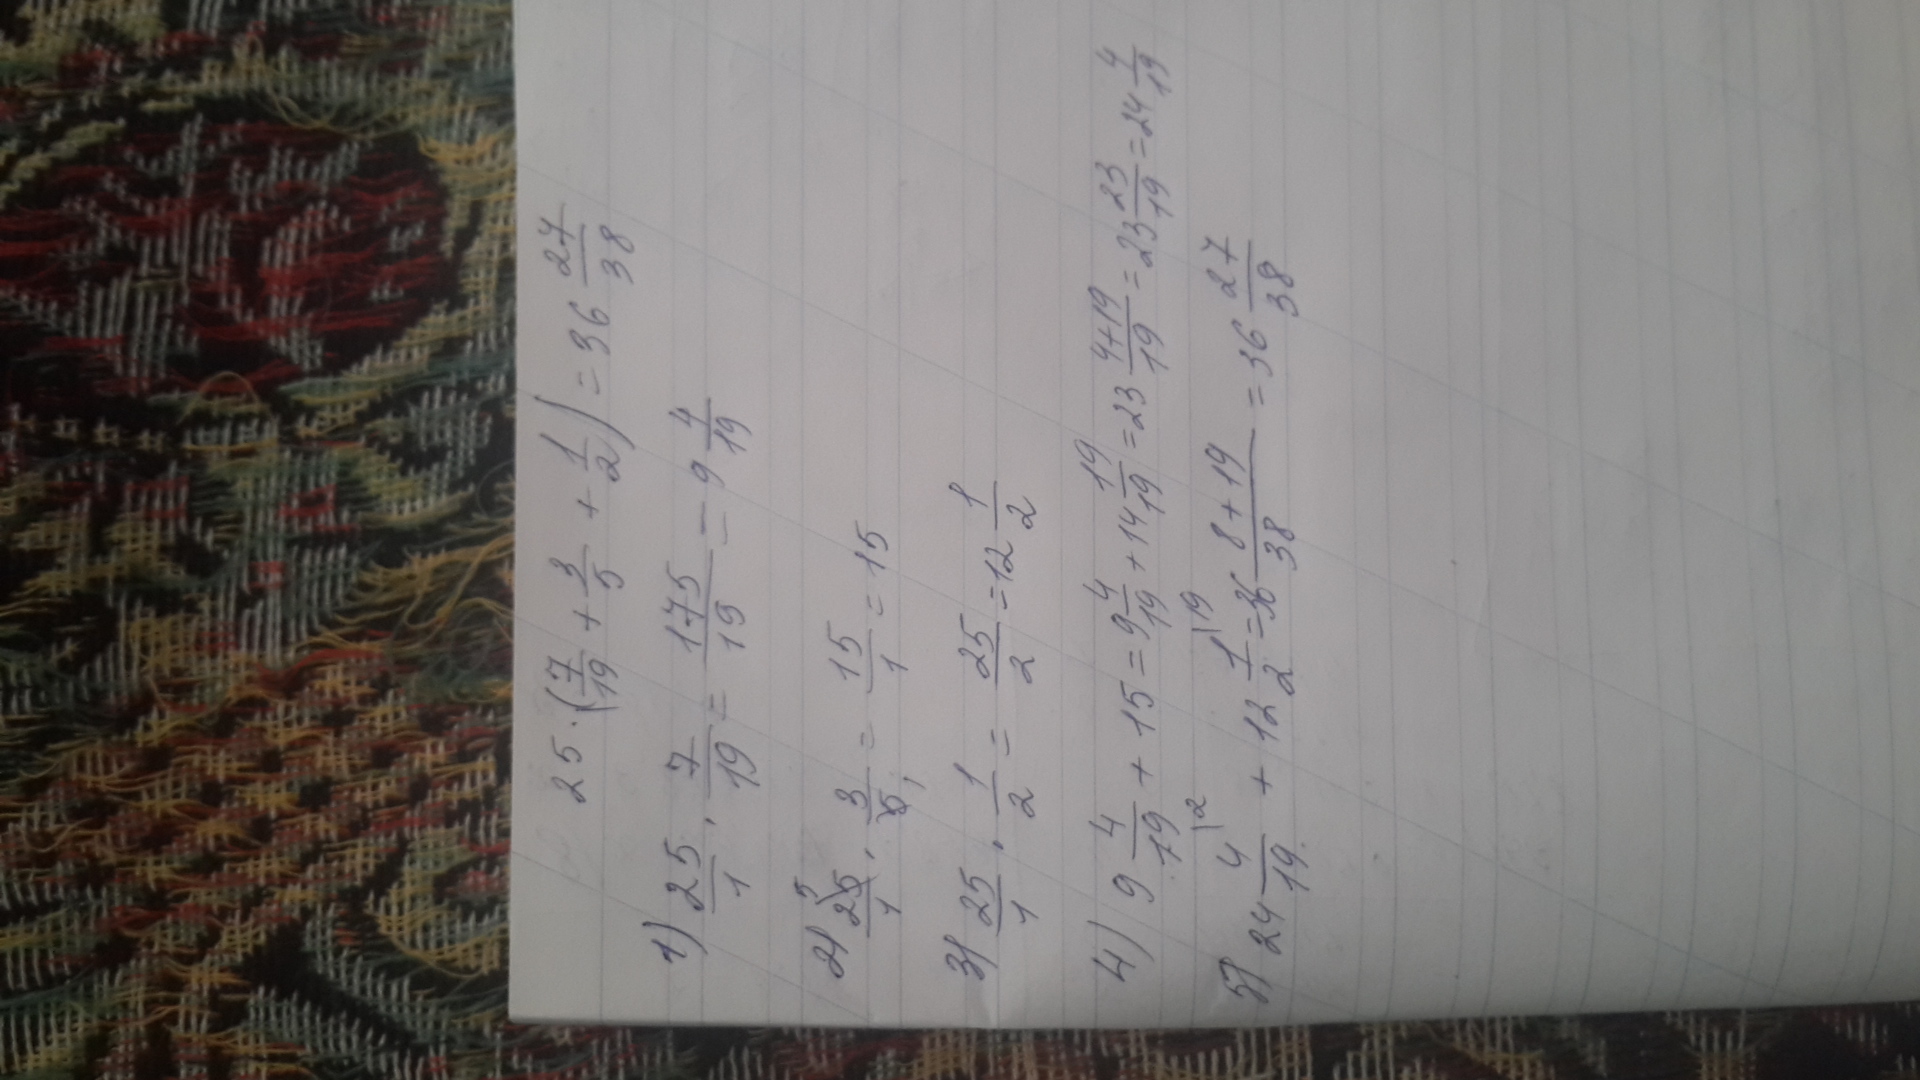 25 · (7/19 + 3/5 + 1/2) = 36 27/38
1) 25/1 · 7/19 = 175/19 = 9 4/19
2) 25⁵/1 · 3/5₁ = 15/1 = 15
3) 25/1 · 1/2 = 25/2 = 12 1/2
4) 9 4/19 + 15 = 9 4/19 + 14 19/19 = 23 4+19/19 = 23 23/19 = 24 4/19
5) 24 4/19 |2 + 12 1/2 |19 = 36 8+19/38 = 36 27/38